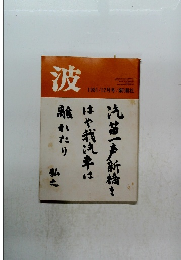 波
汽笛一声新橋を
はや我汽車は
離れたり
弘之